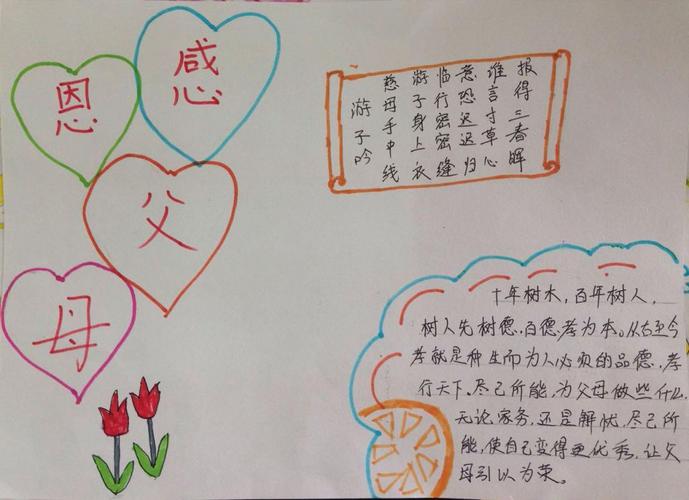 感
恩
父
母
游子吟
慈母手中线
游子身上衣
临行密密缝
意恐迟迟归
谁言寸草心
报得三春晖
十年树木，百年树人，
树人先树德，百德孝为本。从古至今
孝就是种生而为人必须的品德，孝
行天下。尽己所能，为父母做些什么，
无论家务，还是解忧，尽己所
能，使自己变得更优秀，让父
母引以为荣。